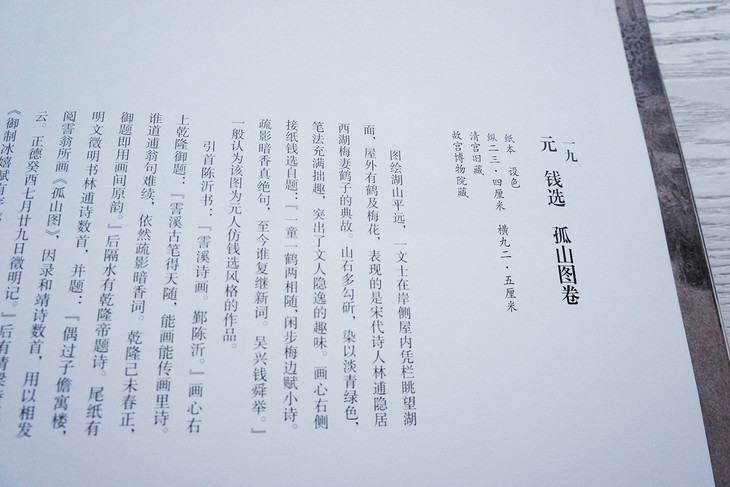 一九
元 钱选 孤山图卷
纸本 设色
纵二三·四厘米 横九二·五厘米
清宫旧藏
故宫博物院藏
图绘湖山平远，一文士在岸侧屋内凭栏眺望湖
面，屋外有鹤及梅花，表现的是宋代诗人林逋隐居
西湖梅妻鹤子的典故。山石多勾斫，染以淡青绿色，
笔法充满拙趣，突出了文人隐逸的趣味。画心右侧
接纸钱选自题：『一童一鹤两相随，闲步梅边赋小诗。
疏影暗香真绝句，至今谁复继新词。吴兴钱舜举。』
一般认为该图为元人仿钱选风格的作品。
引首陈沂书：『霅溪诗画。鄞陈沂。』画心右
上乾隆御题：『霅溪古笔得天随，能画能传画里诗。
谁道逋翁句难续，依然疏影暗香词。乾隆己未春正，
御题即用画间原韵。』后隔水有乾隆帝题诗。尾纸有
明文徵明书林逋诗数首，并题：『偶过子儋寓楼，
阅霅翁所画《孤山图》，因录和靖诗数首，用以相发
云。正德癸酉七月廿九日徵明记。』后有清梁
《御制冰嬉赋有